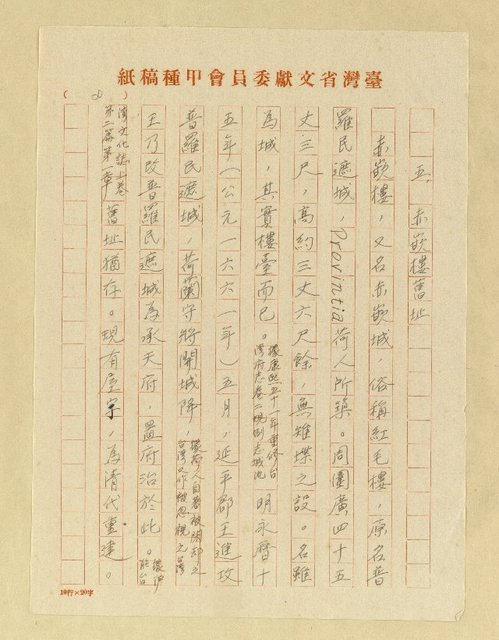 紙稿種甲會員委獻文省灣臺
( 20 )
五、赤嵌樓舊址
赤嵌樓，又名赤嵌城，俗稱紅毛樓，原名普
羅民遮城，Provintia荷人所築。周圍廣四十五
丈三尺，高約三丈六尺餘，無雉堞之設。名雖
為城，其實樓臺而已。據康熙五十一年重修台灣府志卷二規制志城池明永曆十
五年（公元一六六一年）五月，延平郡王進攻
普羅民遮城，荷蘭守將開城降，據荷人自著被
王乃改普羅民遮城為承天府，置府治於此。
灣文化誌上卷第二篇第一章舊址猶存。現有屋宇，為清代重建。
10行×20字